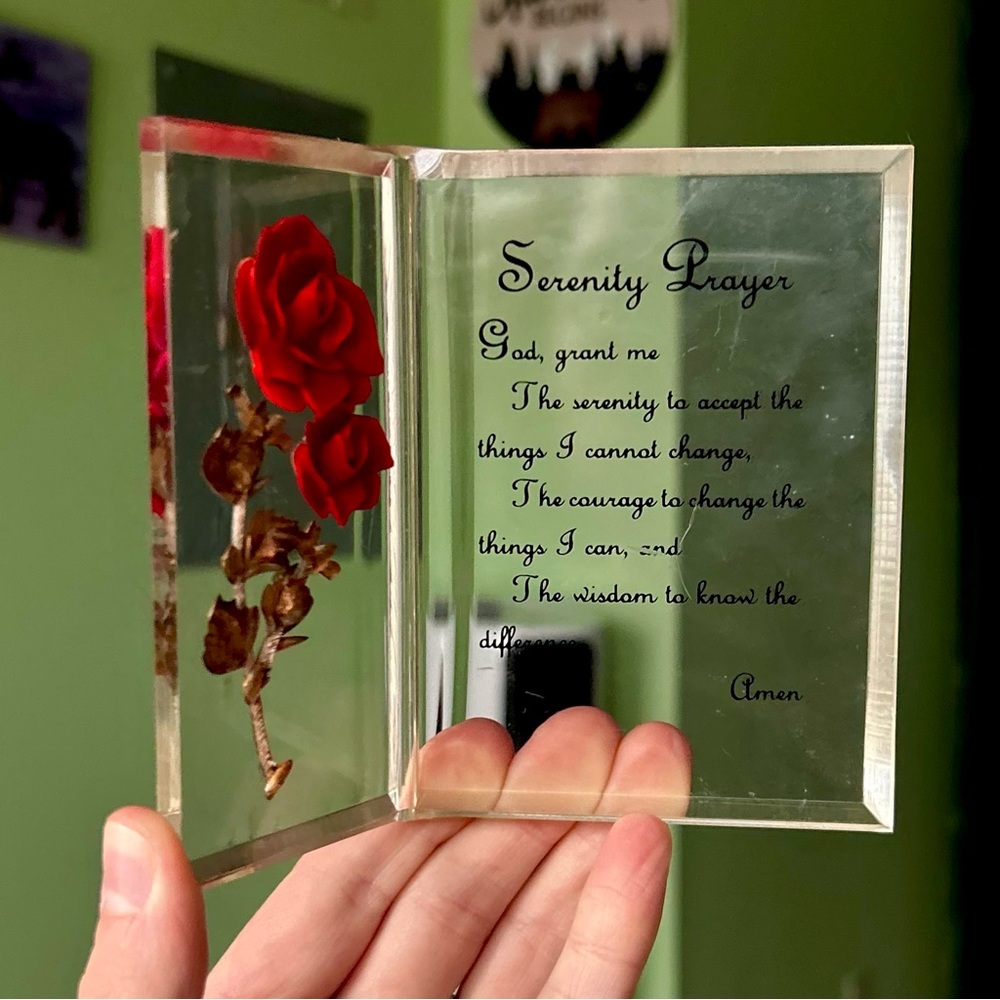 Serenity Prayer
God, grant me
The serenity to accept the
things I cannot change,
The courage to change the
things I can, and
The wisdom to know the
difference
Amen